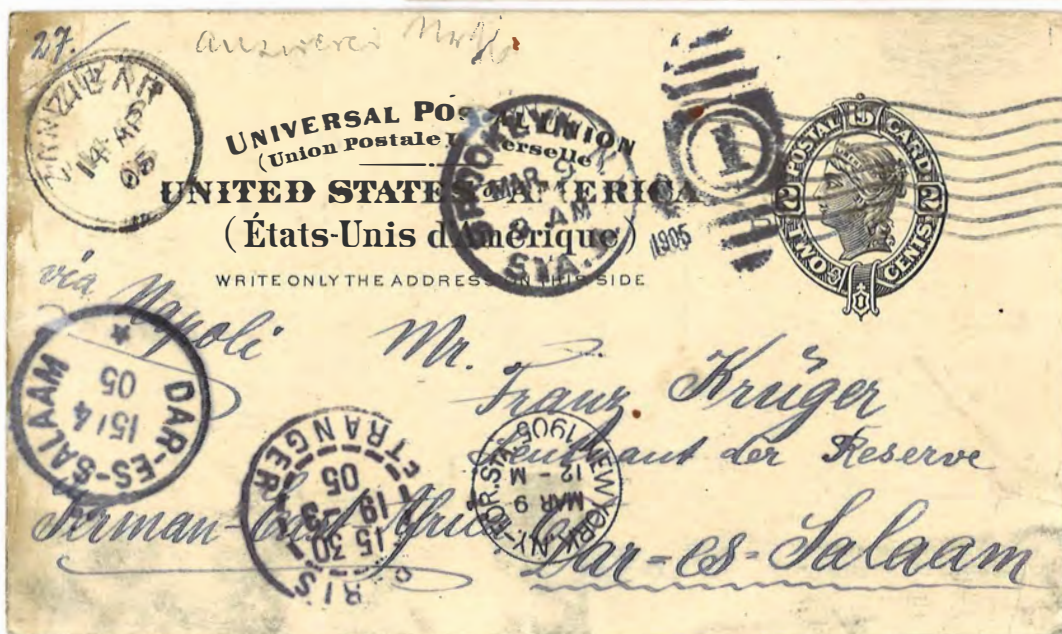 27.
ZANZIBAR
14 AP
05
UNIVERSAL POSTAL UNION
(Union Postale Universelle)
UNITED STATES OF AMERICA
(États-Unis d'Amérique)
WRITE ONLY THE ADDRESS ON THIS SIDE
BROOKLYN
MAR 9
8 AM
STA.
1
1905
POSTAL CARD
2 2
TWO CENTS
via Napoli
Mr.
Franz Krüger
Lieutenant der Reserve
German-East Africa
Dar-es-Salaam
DAR-ES-SALAAM
15/4
05
ETRANGER
15 30
19 - 3
05
NEW YORK, N.Y.-FOR. STA.
MAR 9
12 - M
1905